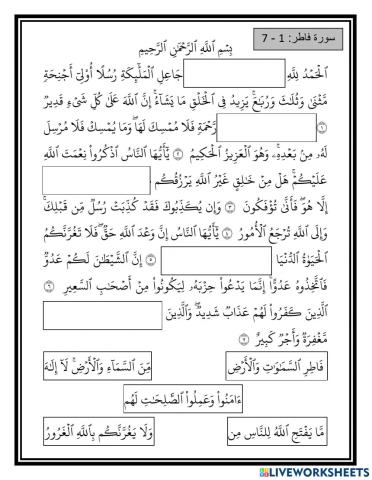 سورة فاطر: 1 - 7
بِسْمِ ٱللَّهِ ٱلرَّحْمَٰنِ ٱلرَّحِيمِ
ٱلْحَمْدُ لِلَّهِ جَاعِلِ ٱلْمَلَٰٓئِكَةِ رُسُلًا أُو۟لِىٓ أَجْنِحَةٍ
مَّثْنَىٰ وَثُلَٰثَ وَرُبَٰعَ ۚ يَزِيدُ فِى ٱلْخَلْقِ مَا يَشَآءُ ۚ إِنَّ ٱللَّهَ عَلَىٰ كُلِّ شَىْءٍ قَدِيرٌ
١ رَّحْمَةٍ فَلَا مُمْسِكَ لَهَا ۖ وَمَا يُمْسِكْ فَلَا مُرْسِلَ
لَهُۥ مِنۢ بَعْدِهِۦ ۚ وَهُوَ ٱلْعَزِيزُ ٱلْحَكِيمُ ٢ يَٰٓأَيُّهَا ٱلنَّاسُ ٱذْكُرُوا۟ نِعْمَتَ ٱللَّهِ
عَلَيْكُمْ ۚ هَلْ مِنْ خَٰلِقٍ غَيْرُ ٱللَّهِ يَرْزُقُكُم
إِلَّا هُوَ ۖ فَأَنَّىٰ تُؤْفَكُونَ ٣ وَإِن يُكَذِّبُوكَ فَقَدْ كُذِّبَتْ رُسُلٌ مِّن قَبْلِكَ ۚ
وَإِلَى ٱللَّهِ تُرْجَعُ ٱلْأُمُورُ ٤ يَٰٓأَيُّهَا ٱلنَّاسُ إِنَّ وَعْدَ ٱللَّهِ حَقٌّ ۖ فَلَا تَغُرَّنَّكُمُ
ٱلْحَيَوٰةُ ٱلدُّنْيَا ٥ إِنَّ ٱلشَّيْطَٰنَ لَكُمْ عَدُوٌّ
فَٱتَّخِذُوهُ عَدُوًّا ۚ إِنَّمَا يَدْعُوا۟ حِزْبَهُۥ لِيَكُونُوا۟ مِنْ أَصْحَٰبِ ٱلسَّعِيرِ ٦
ٱلَّذِينَ كَفَرُوا۟ لَهُمْ عَذَابٌ شَدِيدٌ ۖ وَٱلَّذِينَ
مَّغْفِرَةٌ وَأَجْرٌ كَبِيرٌ ٧
فَاطِرِ ٱلسَّمَٰوَٰتِ وَٱلْأَرْضِ مِّنَ ٱلسَّمَآءِ وَٱلْأَرْضِ ۚ لَآ إِلَٰهَ
ءَامَنُوا۟ وَعَمِلُوا۟ ٱلصَّٰلِحَٰتِ لَهُم
مَّا يَفْتَحِ ٱللَّهُ لِلنَّاسِ مِن وَلَا يَغُرَّنَّكُم بِٱللَّهِ ٱلْغَرُورُ
LIVEWORKSHEETS